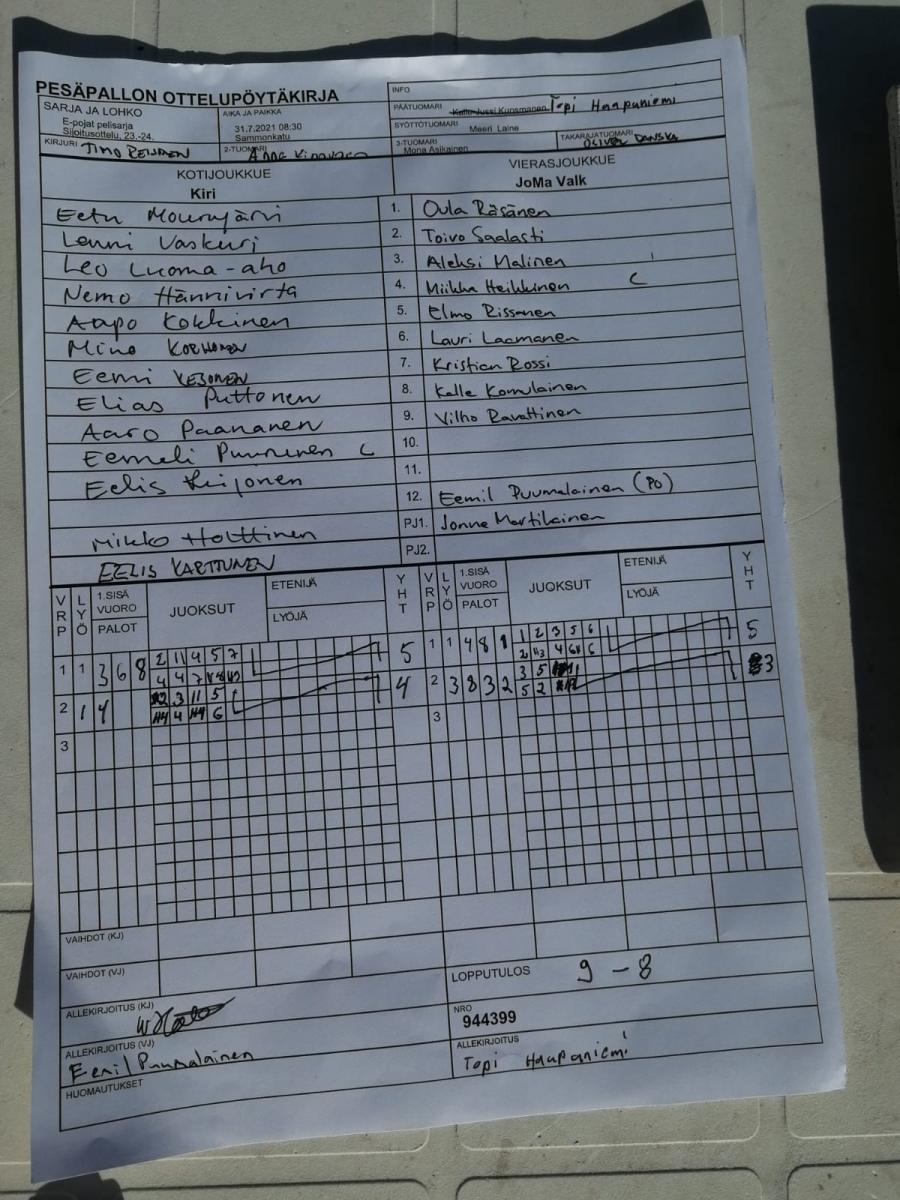 PESÄPALLON OTTELUPÖYTÄKIRJA
INFO
SARJA JA LOHKO
E-pojat pelisarja
Sijoitusottelu, 23.-24.
AIKA JA PAIKKA
31.7.2021 08:30
Sammonkatu
PÄÄTUOMARI Topi Haapaniemi
SYÖTTÖTUOMARI Meeri Laine
KIRJURI TIMO
2-TUOMARI
3-TUOMARI
Mona Asikainen
TAKARAJATUOMARI
OLIVER DANSKA
KOTIJOUKKUE
Kiri
VIERASJOUKKUE
JoMa Valk
Eetu Mourujärvi 1. Oula Räsänen
Lenni Vaskuri 2. Toivo Saalasti
Leo Luoma-aho 3. Aleksi Malinen
Nemo Hännivirta 4. Miikka Heikkinen C
Aapo Kokkinen 5. Elmo Rissanen
Mino KORHONEN 6. Lauri Laamanen
Eemi KESONEN 7. Kristian Rossi
Elias Puttonen 8. Kalle Komulainen
Aaro Paananen 9. Vilho Ravattinen
Eemeli Puurunen C 10.
Eelis Kiijonen 11.
12. Eemil Puumalainen (PO)
Mikko Holttinen PJ1. Jonne Martikainen
EELIS KARTTUNEN PJ2.
VRP LYÖ 1.SISÄ VUORO PALOT JUOKSUT ETENIJÄ LYÖJÄ YHT
VRP LYÖ 1.SISÄ VUORO PALOT JUOKSUT ETENIJÄ LYÖJÄ YHT
1 1 3 6 8 2 11 4 5 7 5
4 4 7
1 1 4 8 1 1 2 3 5 6 5
2 1 4 3 11 5 4
4 6
2 3 8 3 2 3 5 3
5 2
3
3
VAIHDOT (KJ)
VAIHDOT (VJ)
LOPPUTULOS 9 - 8
ALLEKIRJOITUS (KJ)
NRO
944399
ALLEKIRJOITUS (VJ)
Eemil Puumalainen
ALLEKIRJOITUS
Topi Haapaniemi
HUOMAUTUKSET